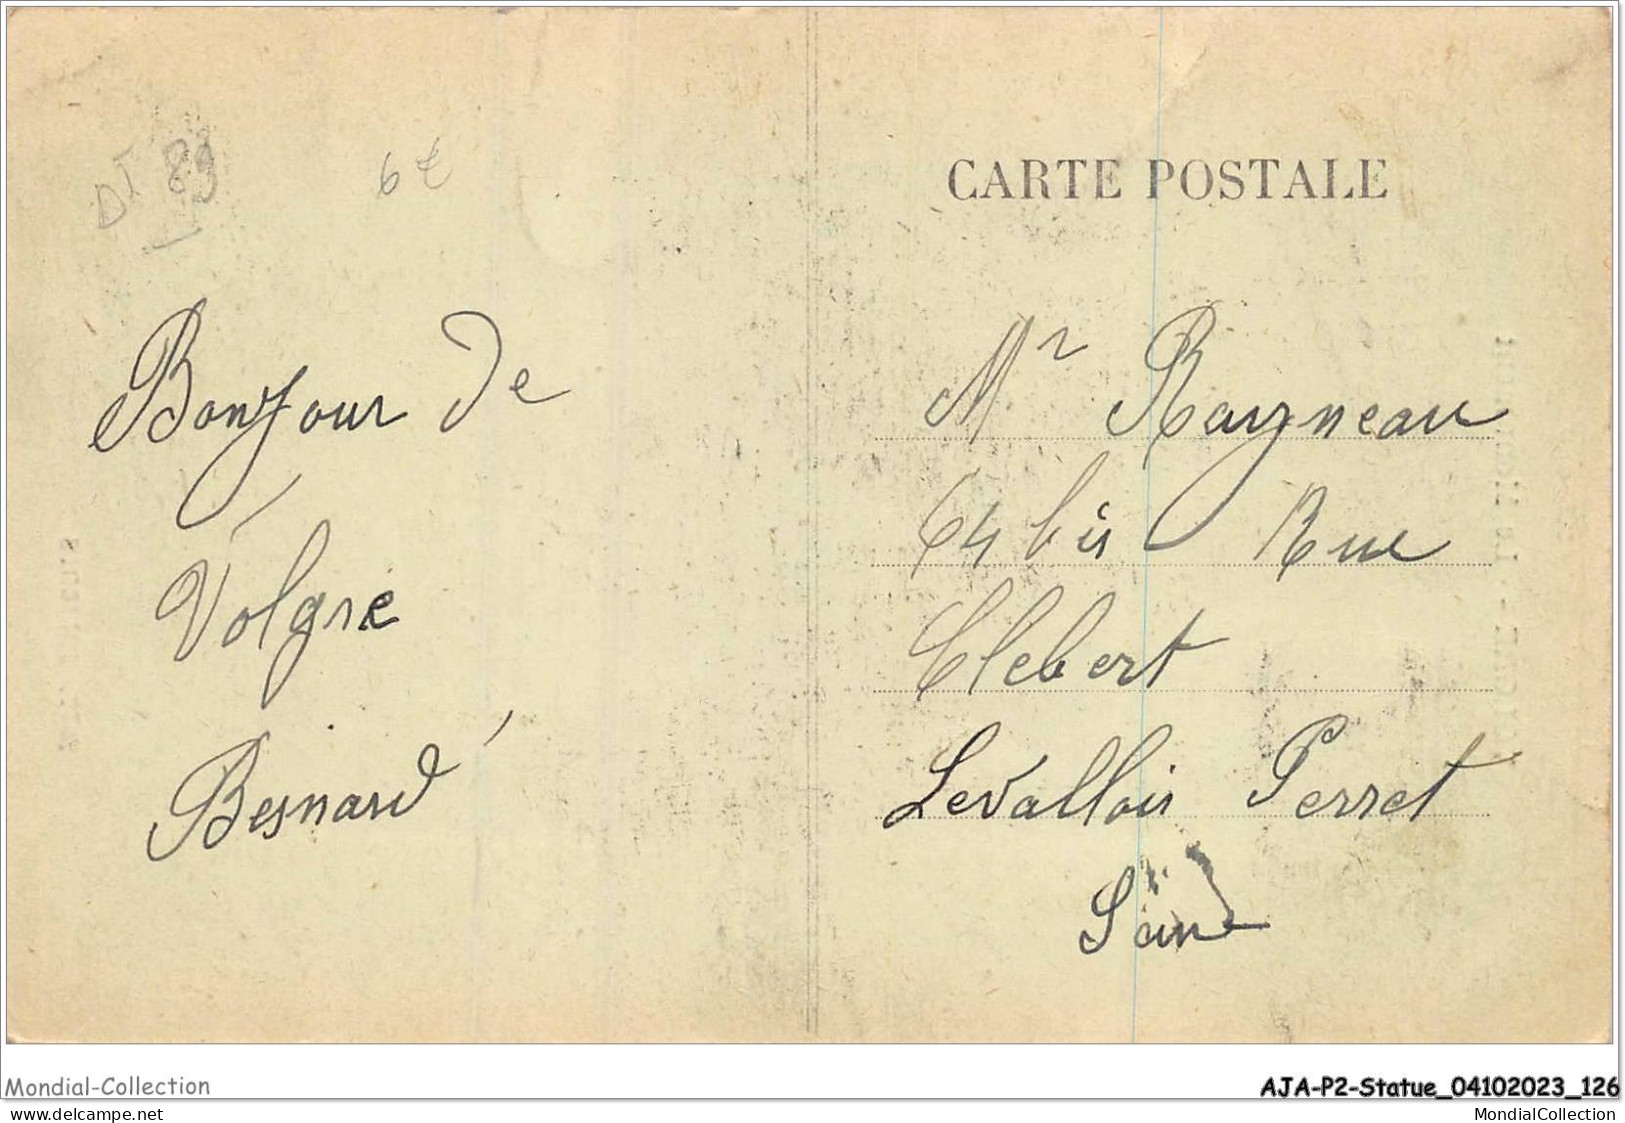 DI 89
6€
CARTE POSTALE
Bonjour de
Volgre
Besnard
Mr Rayneau
64 bis Rue
Clebert
Levallois Perret
Seine
Mondial-Collection
AJA-P2-Statue_04102023_126
delcampe.net
MondialCollection